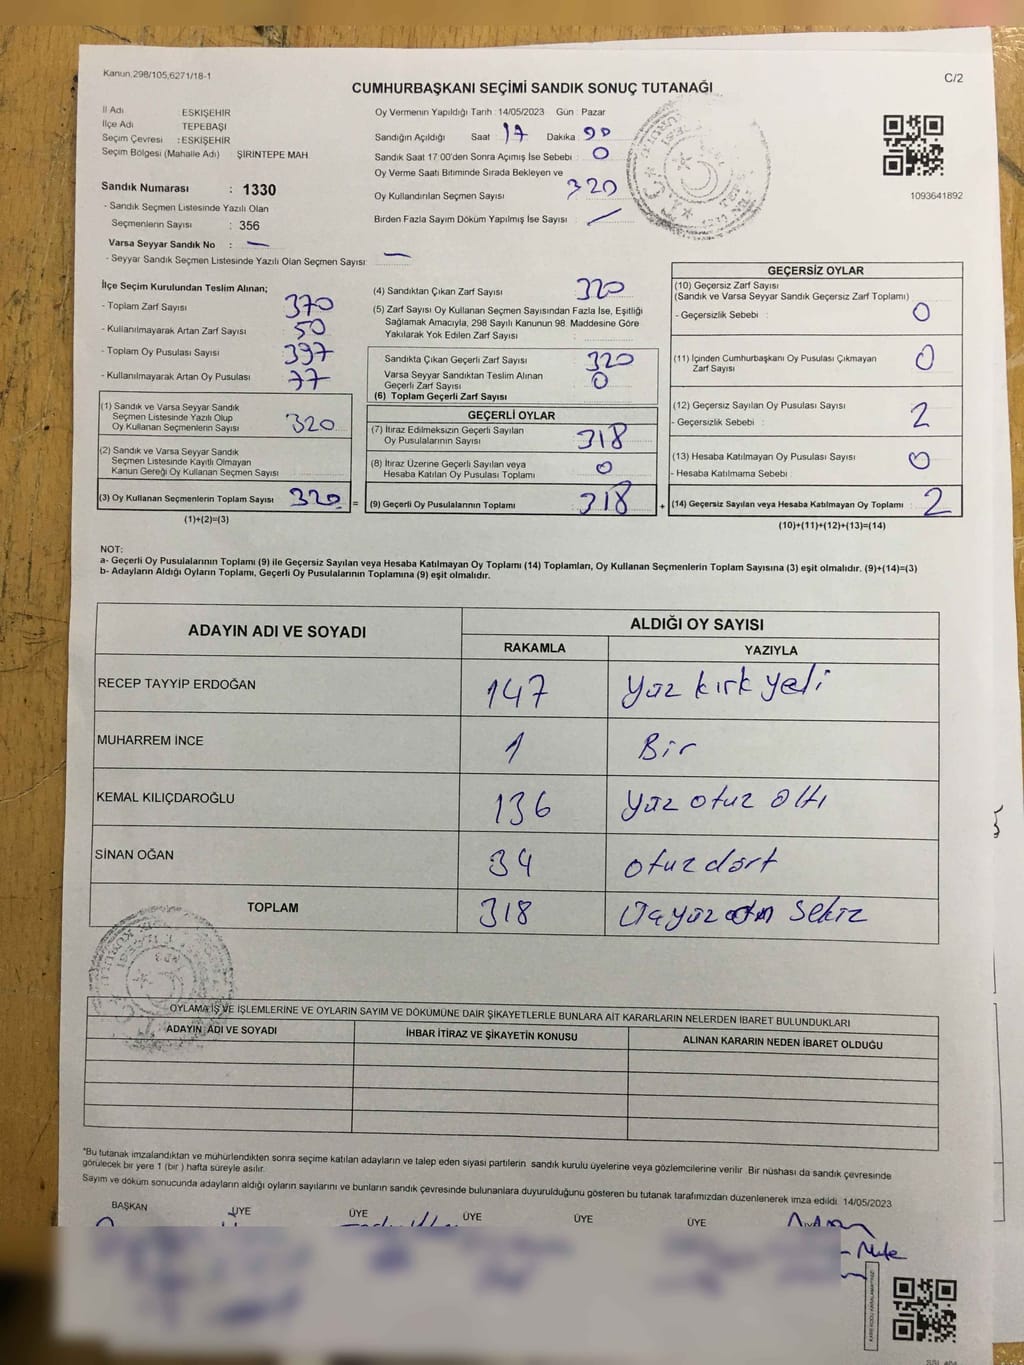 Kanun 298/105,6271/18-1
C/2
CUMHURBAŞKANI SEÇİMİ SANDIK SONUÇ TUTANAĞI
İl Adı : ESKİŞEHİR
İlçe Adı : TEPEBAŞI
Seçim Çevresi : ESKİŞEHİR
Seçim Bölgesi (Mahalle Adı) : ŞİRİNTEPE MAH.
Sandık Numarası : 1330
- Sandık Seçmen Listesinde Yazılı Olan
Seçmenlerin Sayısı : 356
Varsa Seyyar Sandık No : —
- Seyyar Sandık Seçmen Listesinde Yazılı Olan Seçmen Sayısı: —
Oy Vermenin Yapıldığı Tarih :14/05/2023 Gün : Pazar
Sandığın Açıldığı Saat 17 Dakika
Sandık Saat 17:00'den Sonra Açımış İse Sebebi : 0
Oy Verme Saati Bitiminde Sırada Bekleyen ve
Oy Kullandırılan Seçmen Sayısı : 320
Birden Fazla Sayım Döküm Yapılmış İse Sayısı :
1093641892
İlçe Seçim Kurulundan Teslim Alınan;
- Toplam Zarf Sayısı : 370
- Kullanılmayarak Artan Zarf Sayısı : 50
- Toplam Oy Pusulası Sayısı : 397
- Kullanılmayarak Artan Oy Pusulası : 77
(1) Sandık ve Varsa Seyyar Sandık
Seçmen Listesinde Yazılı Olup
Oy Kullanan Seçmenlerin Sayısı : 320
(2) Sandık ve Varsa Seyyar Sandık
Seçmen Listesinde Kayıtlı Olmayan
Kanun Gereği Oy Kullanan Seçmen Sayısı :
(3) Oy Kullanan Seçmenlerin Toplam Sayısı : 320 =
(1)+(2)=(3)
(4) Sandıktan Çıkan Zarf Sayısı : 320
(5) Zarf Sayısı Oy Kullanan Seçmen Sayısından Fazla İse, Eşitliği
Sağlamak Amacıyla, 298 Sayılı Kanunun 98. Maddesine Göre
Yakılarak Yok Edilen Zarf Sayısı :
Sandıkta Çıkan Geçerli Zarf Sayısı : 320
Varsa Seyyar Sandıktan Teslim Alınan
Geçerli Zarf Sayısı : 0
(6) Toplam Geçerli Zarf Sayısı :
GEÇERLİ OYLAR
(7) İtiraz Edilmeksizin Geçerli Sayılan
Oy Pusulalarının Sayısı : 318
(8) İtiraz Üzerine Geçerli Sayılan veya
Hesaba Katılan Oy Pusulası Toplamı : 0
(9) Geçerli Oy Pusulalarının Toplamı : 318 +
GEÇERSİZ OYLAR
(10) Geçersiz Zarf Sayısı
(Sandık ve Varsa Seyyar Sandık Geçersiz Zarf Toplamı)
- Geçersizlik Sebebi : 0
(11) İçinden Cumhurbaşkanı Oy Pusulası Çıkmayan
Zarf Sayısı : 0
(12) Geçersiz Sayılan Oy Pusulası Sayısı
- Geçersizlik Sebebi : 2
(13) Hesaba Katılmayan Oy Pusulası Sayısı
- Hesaba Katılmama Sebebi : 0
(14) Geçersiz Sayılan veya Hesaba Katılmayan Oy Toplamı : 2
(10)+(11)+(12)+(13)=(14)
NOT:
a- Geçerli Oy Pusulalarının Toplamı (9) ile Geçersiz Sayılan veya Hesaba Katılmayan Oy Toplamı (14) Toplamları, Oy Kullanan Seçmenlerin Toplam Sayısına (3) eşit olmalıdır. (9)+(14)=(3)
b- Adayların Aldığı Oyların Toplamı, Geçerli Oy Pusulalarının Toplamına (9) eşit olmalıdır.
ADAYIN ADI VE SOYADI
ALDIĞI OY SAYISI
RAKAMLA YAZIYLA
RECEP TAYYİP ERDOĞAN 147 Yüz kırk yedi
MUHARREM İNCE 1 Bir
KEMAL KILIÇDAROĞLU 136 Yüz otuz altı
SİNAN OĞAN 34 otuz dört
TOPLAM 318 Üçyüz on sekiz
OYLAMA İŞ VE İŞLEMLERİNE VE OYLARIN SAYIM VE DÖKÜMÜNE DAİR ŞİKAYETLERLE BUNLARA AİT KARARLARIN NELERDEN İBARET BULUNDUKLARI
ADAYIN ADI VE SOYADI
İHBAR İTİRAZ VE ŞİKAYETİN KONUSU
ALINAN KARARIN NEDEN İBARET OLDUĞU
*Bu tutanak imzalandıktan ve mühürlendikten sonra seçime katılan adayların ve talep eden siyasi partilerin sandık kurulu üyelerine veya gözlemcilerine verilir. Bir nüshası da sandık çevresinde
görülecek bir yere 1 (bir ) hafta süreyle asılır.
Sayım ve döküm sonucunda adayların aldığı oyların sayılarını ve bunların sandık çevresinde bulunanlara duyurulduğunu gösteren bu tutanak tarafımızdan düzenlenerek imza edildi. 14/05/2023
BAŞKAN ÜYE ÜYE ÜYE ÜYE ÜYE